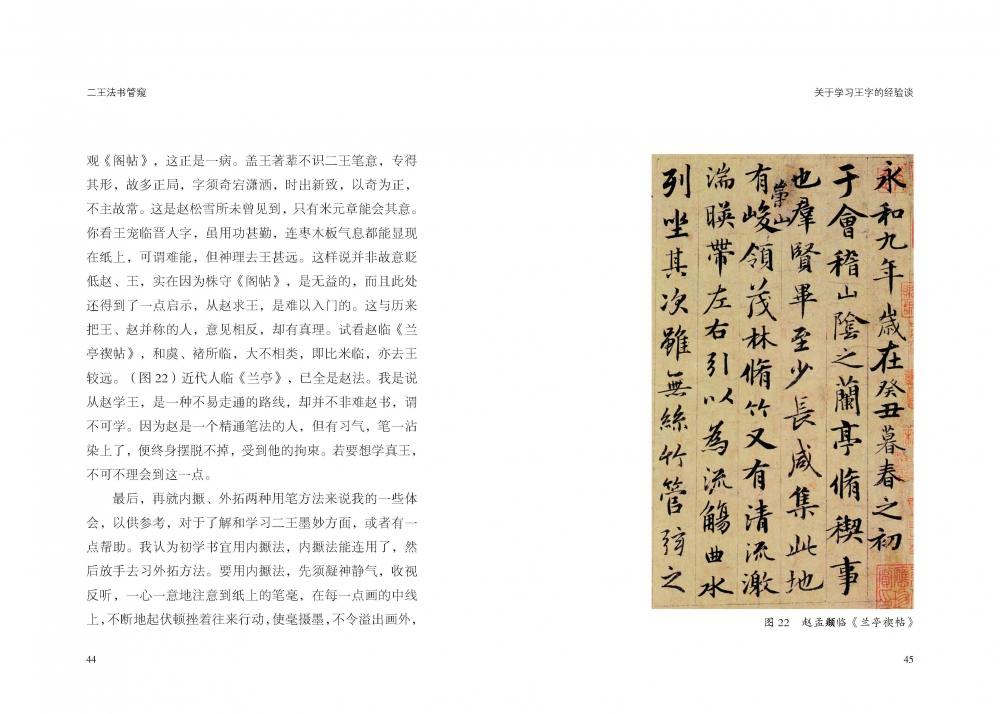 二王法书管窥
观《阁帖》，这正是一病。盖王著辈不识二王笔意，专得
其形，故多正局，字须奇宕潇洒，时出新致，以奇为正，
不主故常。这是赵松雪所未曾见到，只有米元章能会其意。
你看王宠临晋人字，虽用功甚勤，连枣木板气息都能显现
在纸上，可谓难能，但神理去王甚远。这样说并非故意贬
低赵、王，实在因为株守《阁帖》，是无益的，而且此处
还得到了一点启示，从赵求王，是难以入门的。这与历来
把王、赵并称的人，意见相反，却有真理。试看赵临《兰
亭禊帖》，和虞、褚所临，大不相类，即比米临，亦去王
较远。（图 22）近代人临《兰亭》，已全是赵法。我是说
从赵学王，是一种不易走通的路线，却并不非难赵书，谓
不可学。因为赵是一个精通笔法的人，但有习气，笔一沾
染上了，便终身摆脱不掉，受到他的拘束。若要想学真王，
不可不理会到这一点。
最后，再就内擫、外拓两种用笔方法来说我的一些体
会，以供参考，对于了解和学习二王墨妙方面，或者有一
点帮助。我认为初学书宜用内擫法，内擫法能连用了，然
后放手去习外拓方法。要用内擫法，先须凝神静气，收视
反听，一心一意地注意到纸上的笔毫，在每一点画的中线
上，不断地起伏顿挫着往来行动，使毫摄墨，不令溢出画外，
44
关于学习王字的经验谈
永和九年歲在癸丑暮春之初
于會稽山陰之蘭亭脩稧事
也羣賢畢至少長咸集此地
有崇山峻領茂林脩竹又有清流激
湍暎帶左右引以為流觴曲水
列坐其次雖無絲竹管弦之
图 22 赵孟頫临《兰亭禊帖》
45